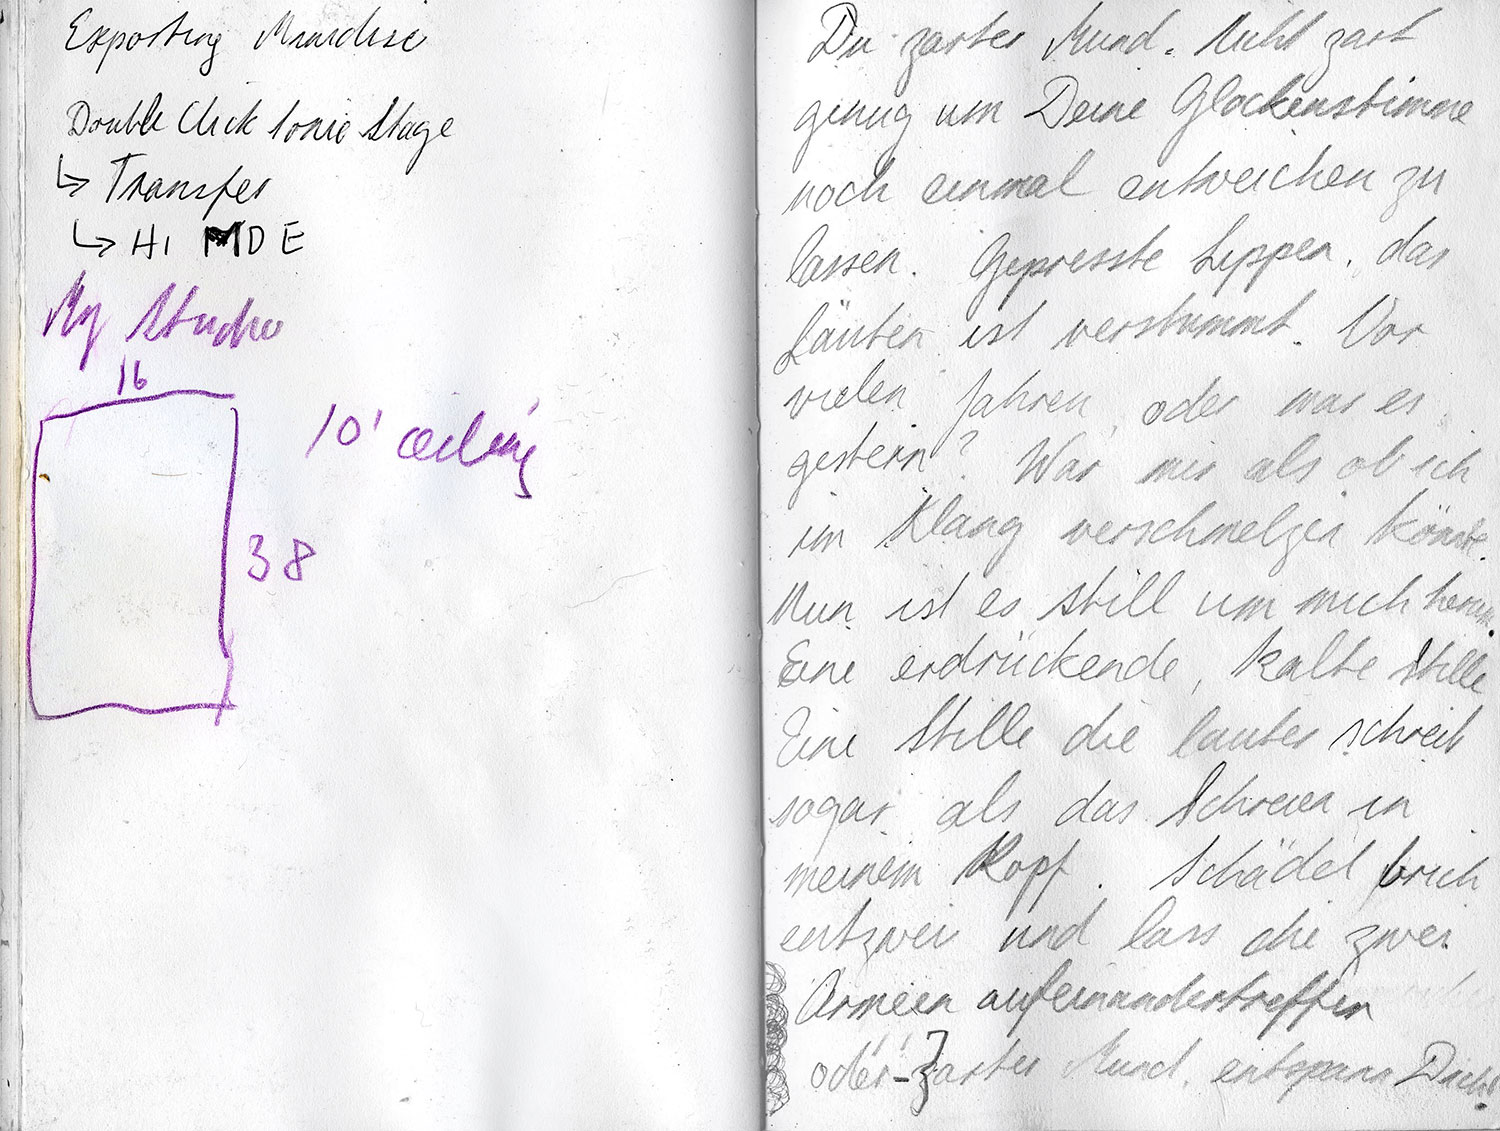 Exporting Minidisc
Double Click Sonic Stage
↳ Transfer
↳ HI MDE
My Studio
16
10' ceiling
38
Du zarter Mund. Nicht zart
genug um Deine Glockenstimme
noch einmal entweichen zu
lassen. Gepresste Lippen, das
Läuten ist verstummt. Vor
vielen Jahren, oder war es
gestern? War mir als ob ich
im Klang verschmelzen könnte.
Nun ist es still um mich herum.
Eine erdrückende, kalte Stille
Eine Stille die lauter schreit
sogar als das Schreien in
meinem Kopf. Schädel brich
entzwei und lass die zwei
Armeen aufeinandertreffen
oder - zarter Mund, entspann Dich